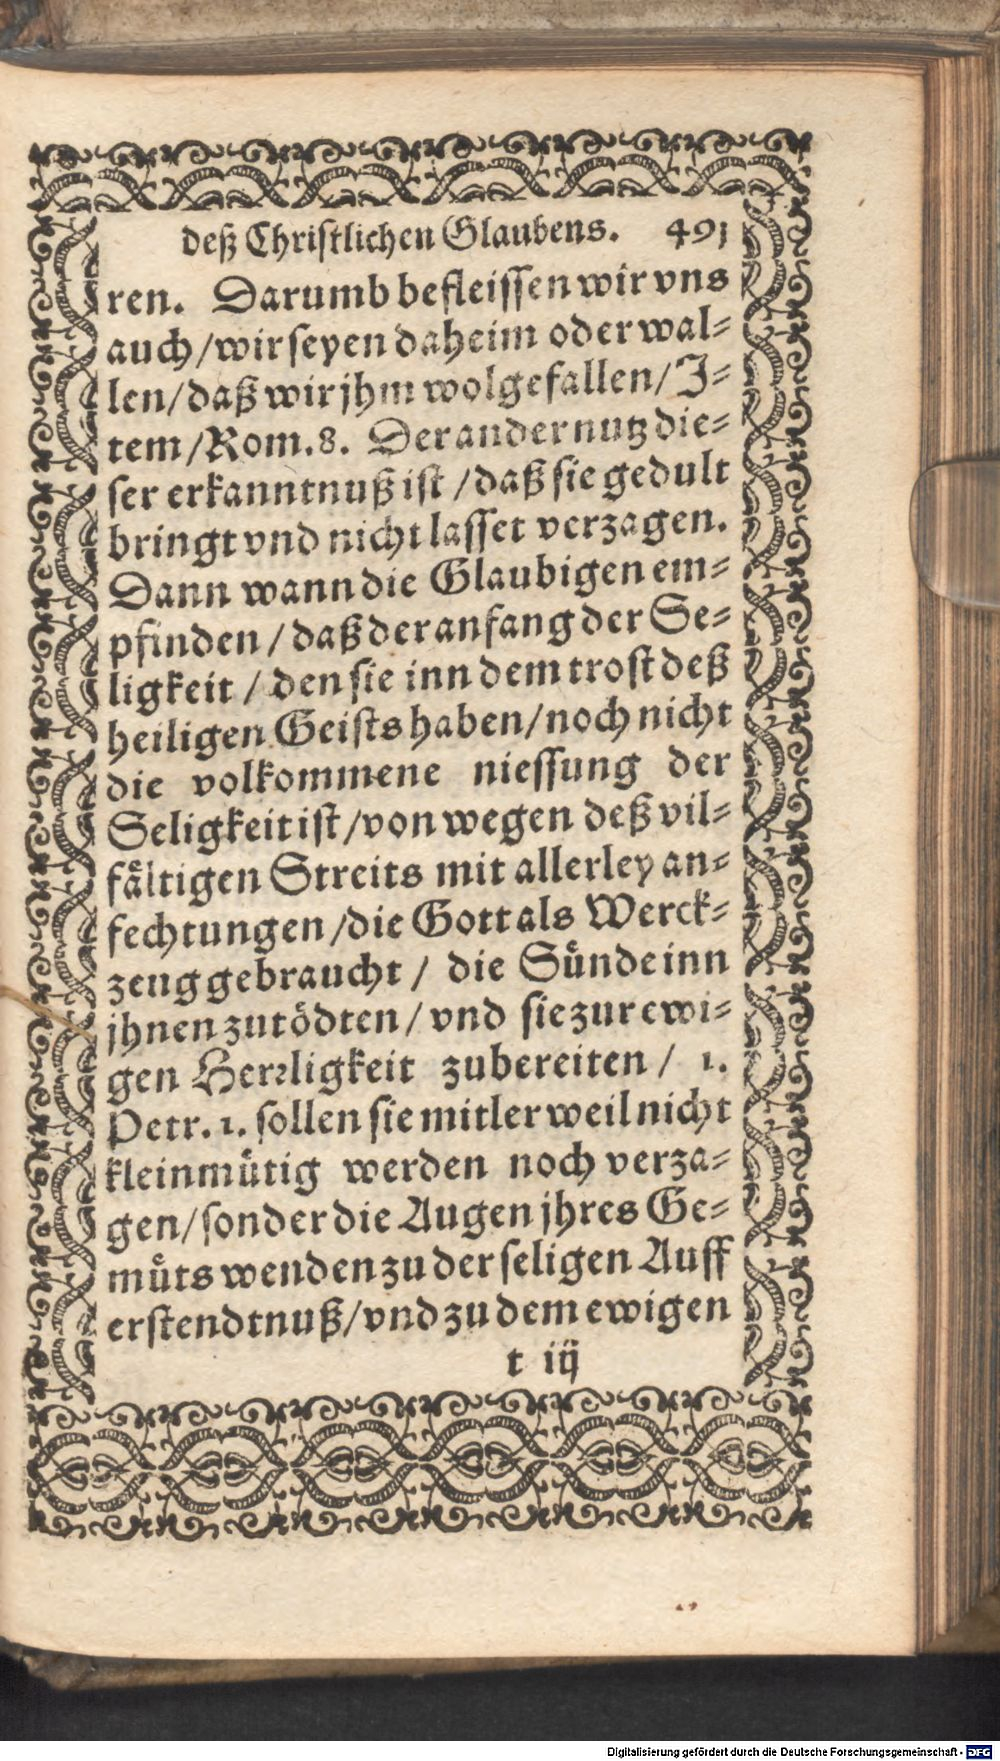 deß Chriſtlichen Glaubens. 491
ren. Darumb befleiſſen wir vns
auch/wir ſeyen daheim oder wal⸗
len/daß wir jhm wolgefallen/ J⸗
tem/Rom.8. Der ander nutz die⸗
ſer erkanntnuß iſt /daß ſie gedult
bringt vnd nicht laſſet verzagen.
Dann wann die Glaubigen em⸗
pfinden / daß der anfang der Se⸗
ligkeit / den ſie inn dem troſt deß
heiligen Geiſts haben/noch nicht
die volkommene nieſſung der
Seligkeit iſt/von wegen deß vil⸗
fåltigen Streits mit allerley an⸗
fechtungen /die Gott als Werck⸗
zeug gebraucht / die Sünde inn
jhnen zu tödten/ vnd ſie zur ewi⸗
gen Herꝛligkeit zubereiten / 1.
Petr.1. ſollen ſie mitler weil nicht
kleinmütig werden noch verza⸗
gen/ſonder die Augen jhres Ge⸗
müts wenden zu der ſeligen Auff
erſtendtnuß/vnd zu dem ewigen
t iij
Digitalisierung gefördert durch die Deutsche Forschungsgemeinschaft - DFG